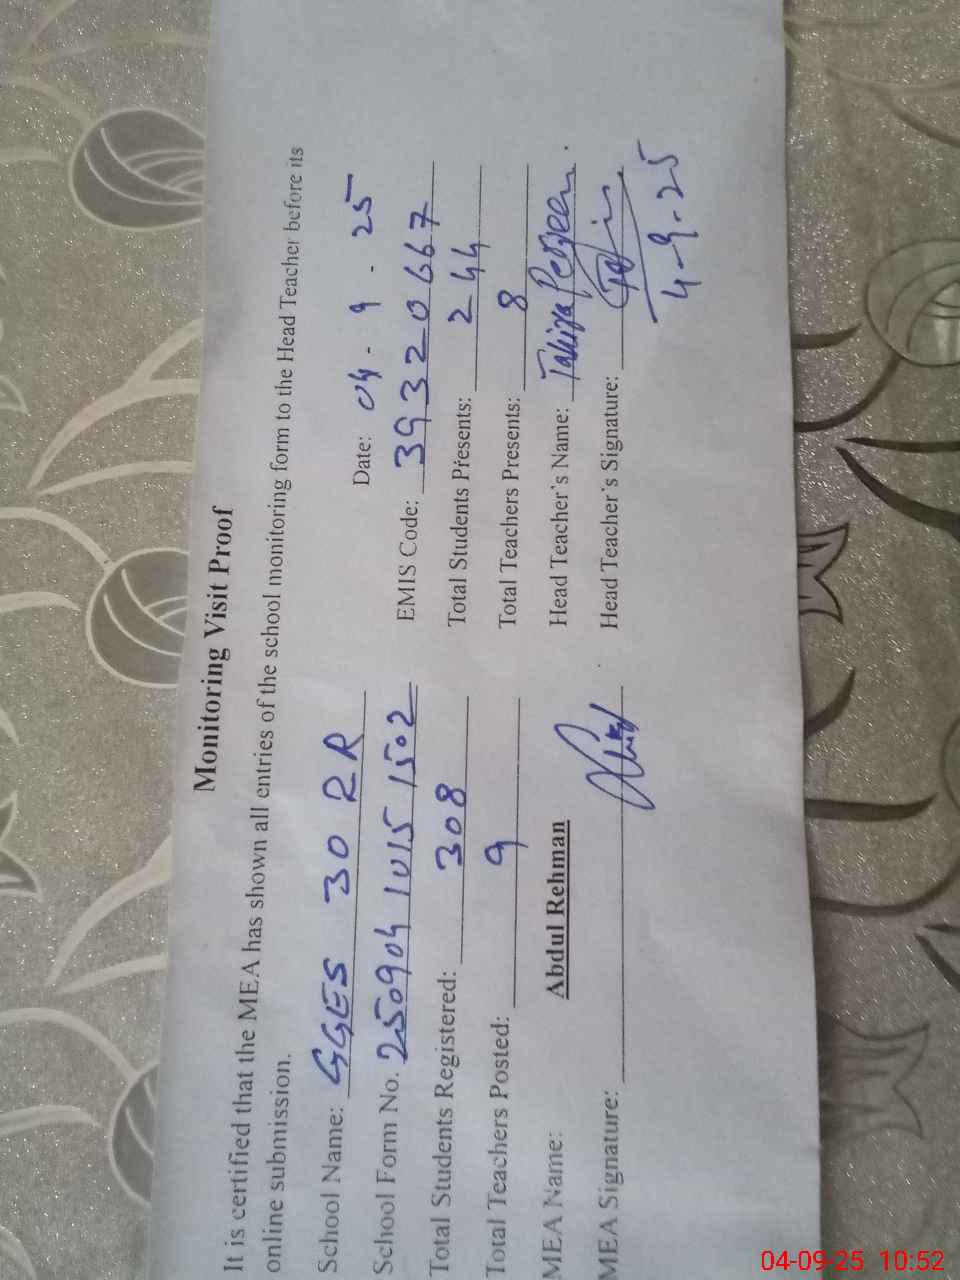 Monitoring Visit Proof
It is certified that the MEA has shown all entries of the school monitoring form to the Head Teacher before its
online submission.
Date: 04 - 9 - 25
School Name: GGES 30 2R
EMIS Code: 39320667
School Form No. 250904 1015 1502
Total Students Presents: 244
Total Students Registered: 308
Total Teachers Presents: 8
Total Teachers Posted: 9
Head Teacher's Name: Tahira Perveen.
MEA Name: Abdul Rehman
Head Teacher's Signature:
4-9-25
MEA Signature:
04-09-25 10:52